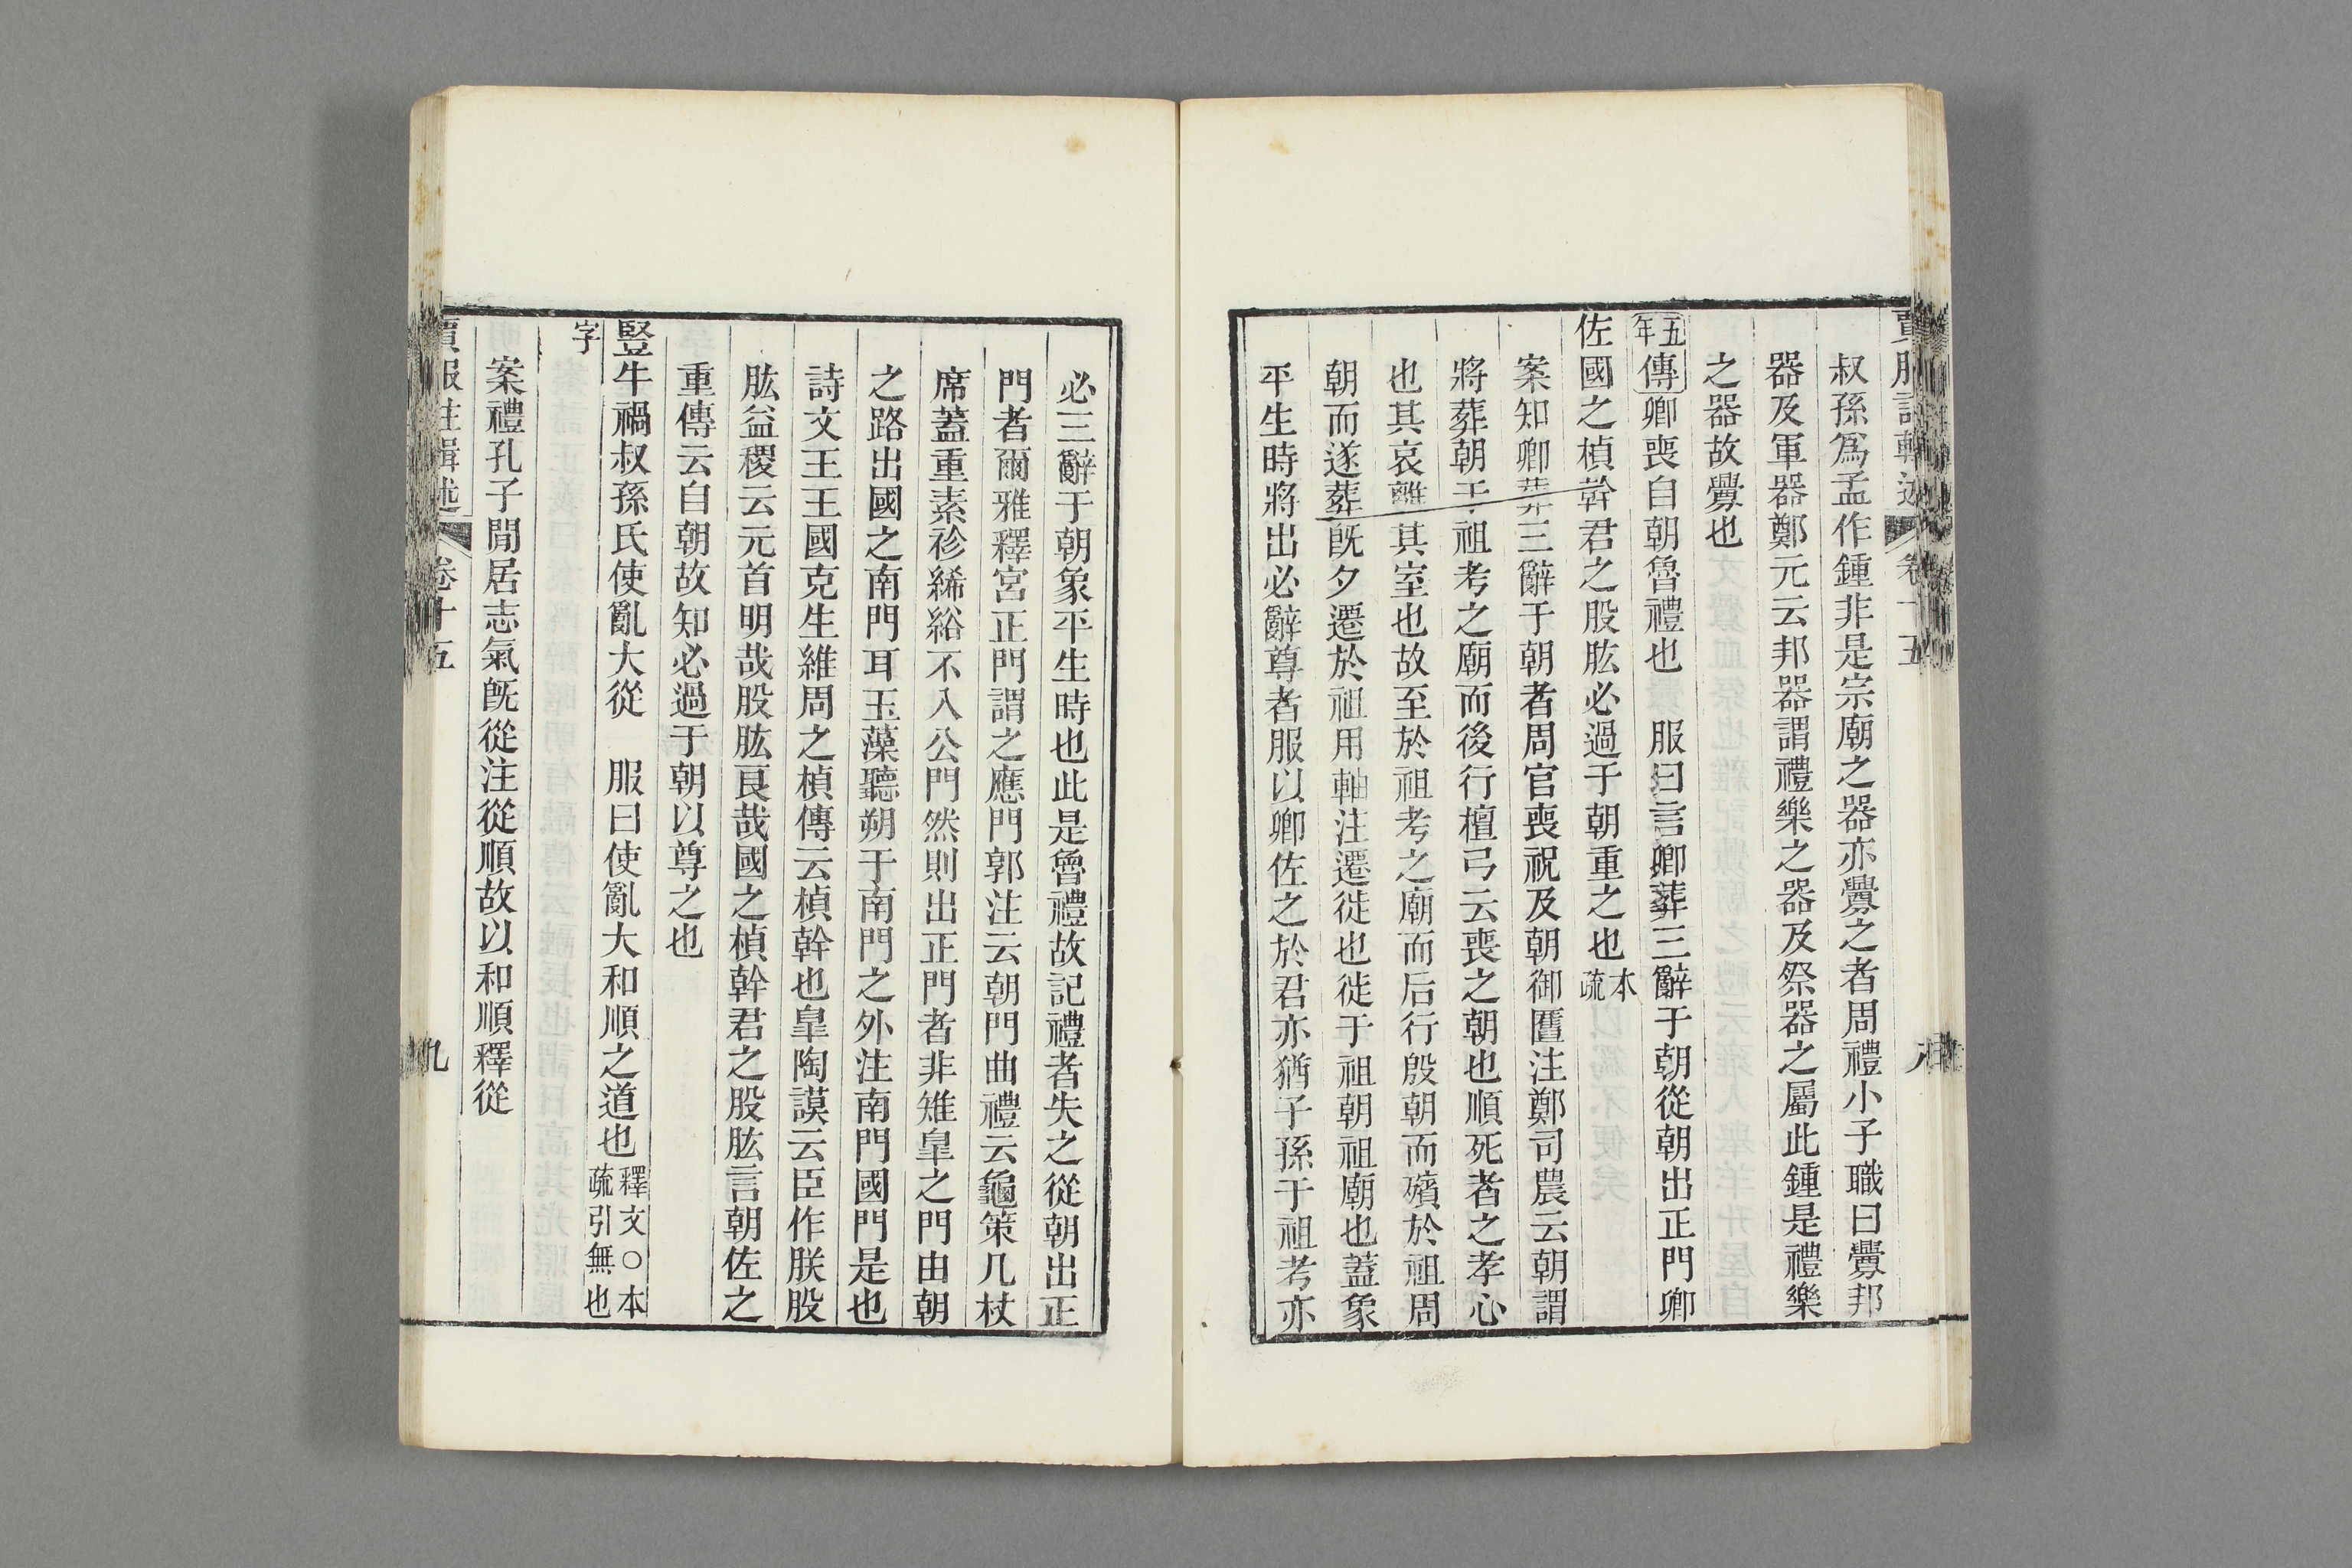 叔孫爲孟作鍾非是宗廟之器亦釁之者周禮小子職曰釁邦
器及軍器鄭元云邦器謂禮樂之器及祭器之屬此鍾是禮樂
之器故釁也
五年傳卿喪自朝魯禮也 服曰言卿葬三辭于朝從朝出正門卿
佐國之楨幹君之股肱必過于朝重之也本疏
案知卿葬三辭于朝者周官喪祝及朝御匶注鄭司農云朝謂
將葬朝于祖考之廟而後行檀弓云喪之朝也順死者之孝心
也其哀離其室也故至於祖考之廟而后行殷朝而殯於祖周
朝而遂葬旣夕遷於祖用軸注遷徙也徙于祖朝祖廟也蓋象
平生時將出必辭尊者服以卿佐之於君亦猶子孫于祖考亦
賈服註輯述 卷十五 八
必三辭于朝象平生時也此是魯禮故記禮者失之從朝出正
門者爾雅釋宮正門謂之應門郭注云朝門曲禮云龜筴几杖
席蓋重素袗絺綌不入公門然則出正門者非雉皐之門由朝
之路出國之南門耳玉藻聽朔于南門之外注南門國門是也
詩文王王國克生維周之楨傳云楨幹也皐陶謨云臣作朕股
肱益稷云元首明哉股肱良哉國之楨幹君之股肱言朝佐之
重傳云自朝故知必過于朝以尊之也
豎牛禍叔孫氏使亂大從 服曰使亂大和順之道也釋文○本疏引無也
字
案禮孔子閒居志氣旣從注從順故以和順釋從
賈服註輯述 卷十五 九